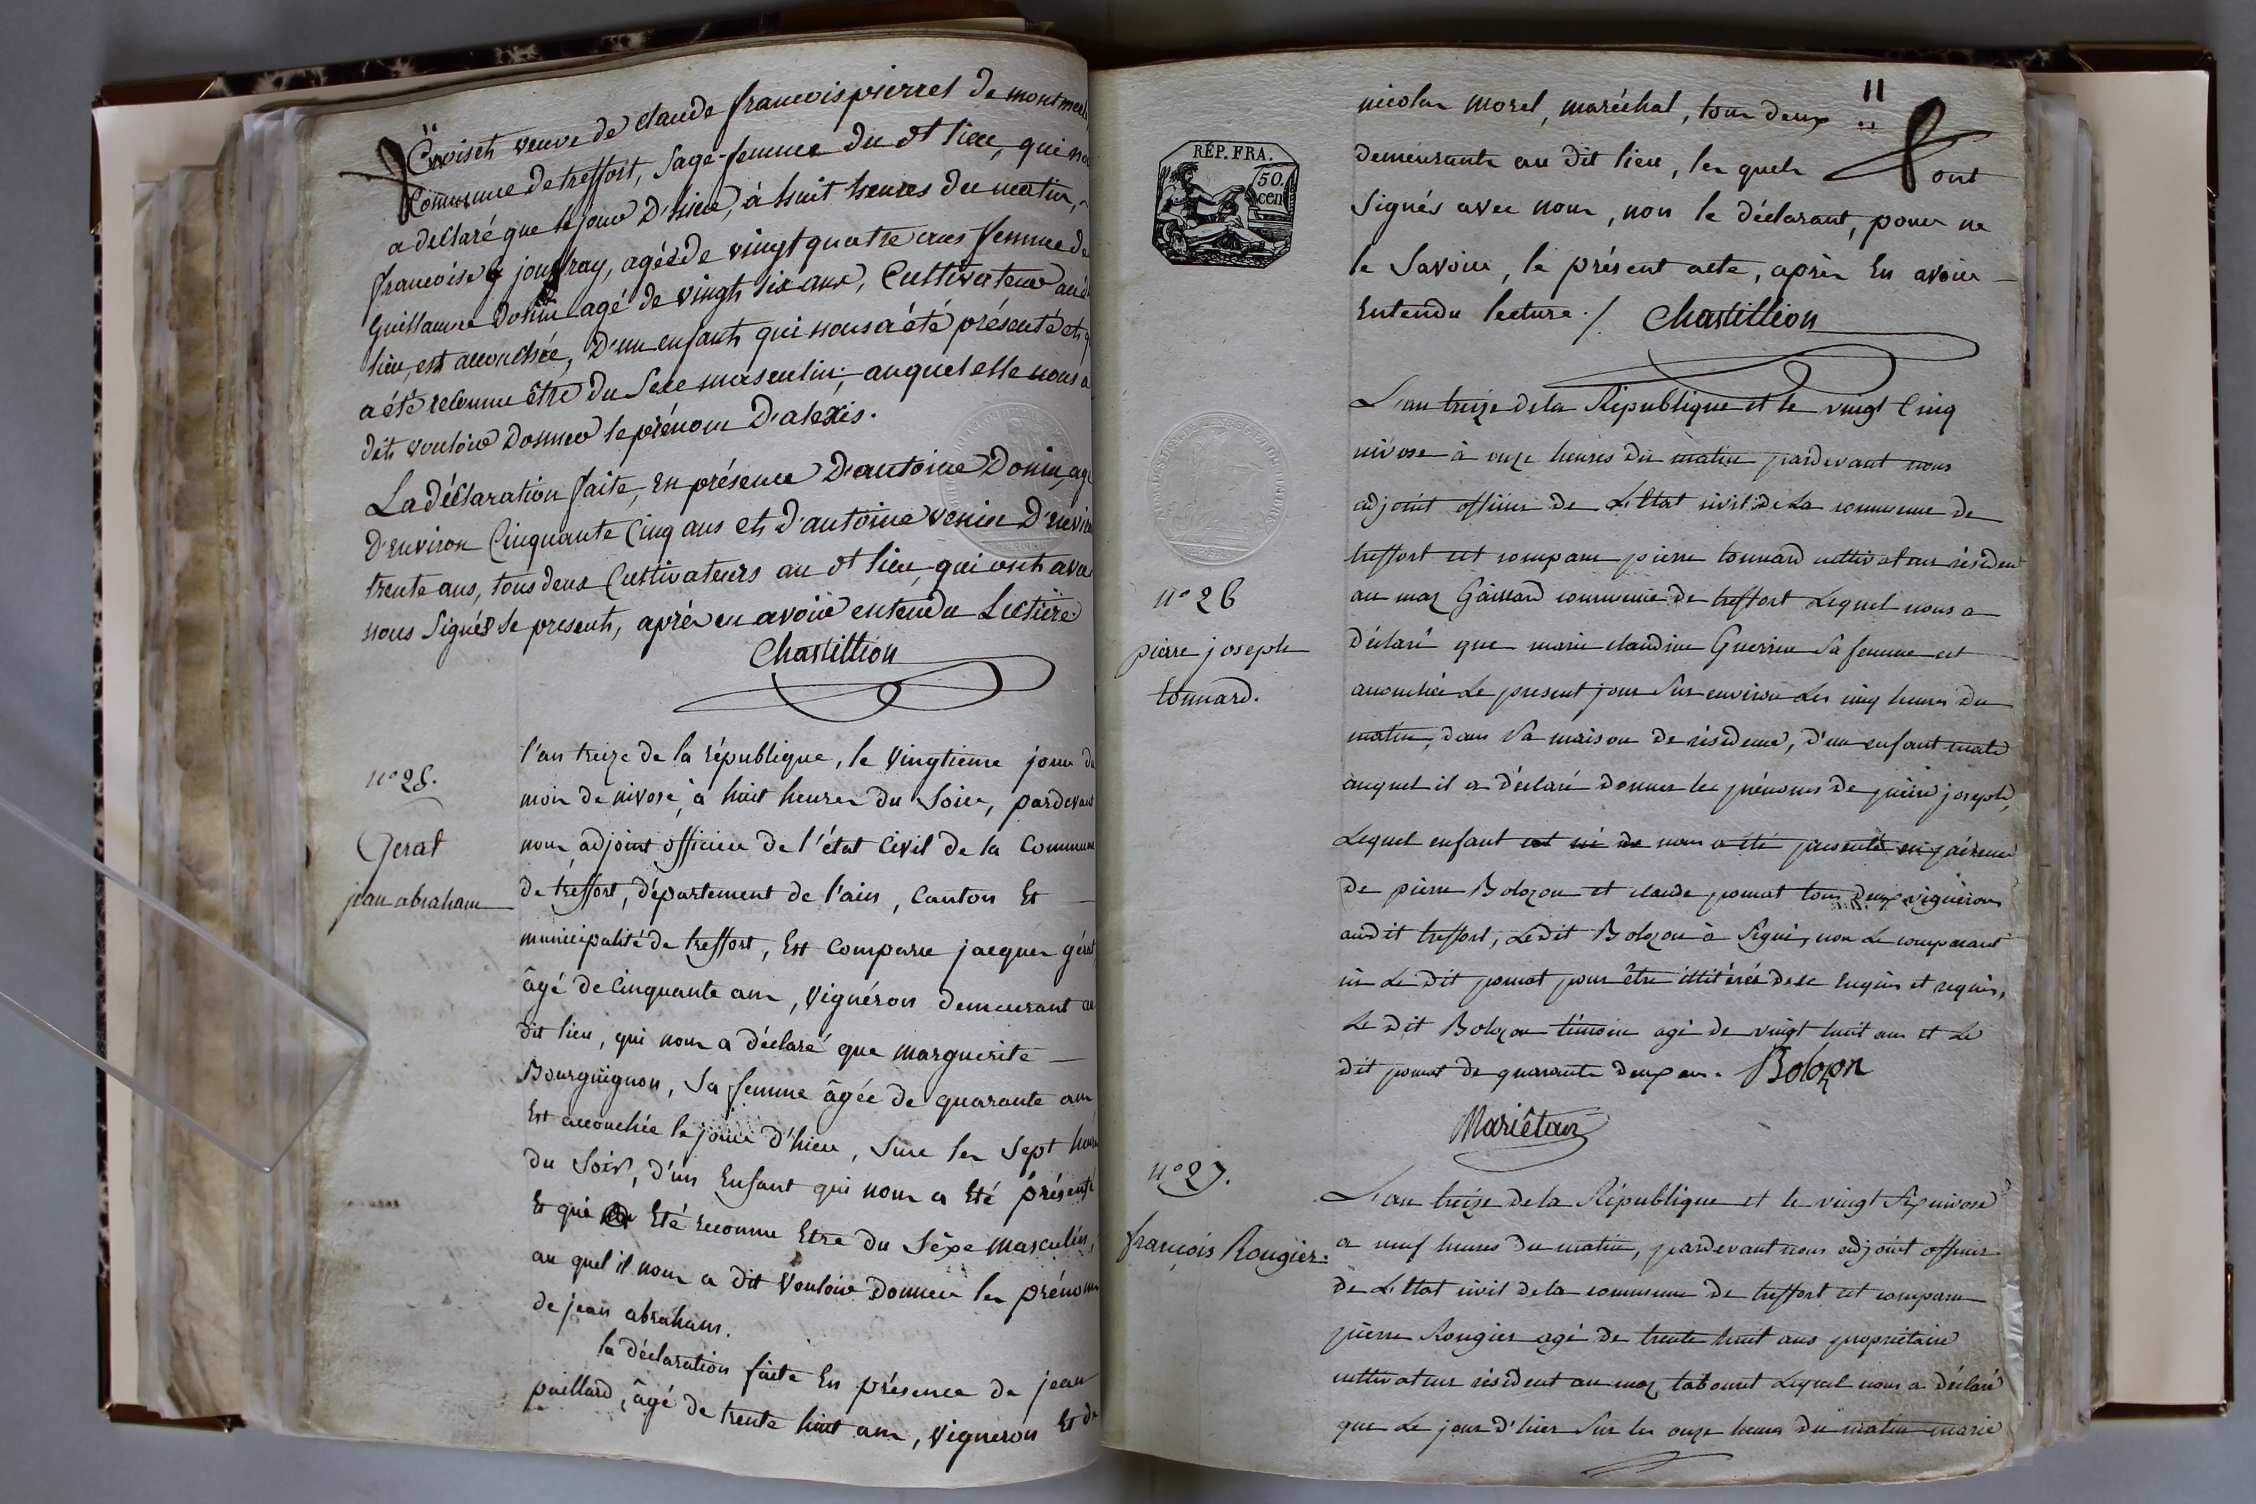 veuve de claude francois pierrel de
Commune de treffort, Sage-femme du dt lieu, qui
a declaré que le jour D'hier, à huit heures du matin,
francoise jouffray, agée de vingt quatre ans femme de
Guillaume Donin agé de vingt six ans, Cultivateur
lieu, est accouchée, D'un enfant qui nous a été présenté et
a été reconnu être du Sexe masculin, auquel elle nous a
dit vouloir Donner le prénom D'alexis.
La déclaration faite, En présence D'antoine Donin, agé
D'environ Cinquante Cinq ans et d'antoine
trente ans, tous deux Cultivateurs au dt lieu, qui ont
nous Signés le present, après en avoir entendu Lecture
Chastillion
n° 25.
Gerat
jean abraham
l'an treize de la république, le vingtieme jour du
mois de nivose, à huit heures du Soir, pardevant
nous adjoint officier de l'état Civil de la Commune
de treffort, département de l'ain, Canton Et
municipalité de treffort, Est Comparu jacques gérat
âgé de Cinquante ans, vignéron demeurant au
dit lieu, qui nous a déclaré que marguerite
Bourguignon, Sa femme âgée de quarante ans
Est accouchée le jour d'hier, Sur les Sept heures
du Soir, d'un Enfant qui nous a Eté présenté
Et qui Eté reconnu Etre du Séxe masculin,
au quel il nous a dit Vouloir Donner les prénoms
de jean abraham.
la déclaration faite En présence de jean
paillard, âgé de trente huit ans, vigneron Et de
11
nicolas morel, maréchal, tous deux
demeurants au dit lieu, les quels ont
Signés avec nous, non le déclarant, pour ne
le Savoir, le présent acte, après En avoir
Entendu lecture. /. Chastillion
RÉP. FRA.
50 cen
L'an treize de la République et le vingt Cinq
nivose à onze heures du matin pardevant nous
adjoint officier de L'Etat civil de La commune de
treffort est comparu pierre tonnard cultivateur résident
au maz Gaillard commune de treffort Lequel nous a
déclaré que marie claudine Guerrin Sa femme est
accouchée Le present jour Sur environ Les cinq heures du
matin, dans Sa maison de résidence, d'un enfant male
auquel il a déclaré donner les prénoms de pierre joseph,
Lequel enfant nous a été presenté en présence
de pierre Bolozon et claude pomat tous deux vignerons
audit treffort, Ledit Bolozon à Signé, non Le comparant
ni Le dit pomat pour être illitérés de ce Enquis et requis,
Le dit Bolozon témoin agé de vingt huit ans et Le
dit pomat de quarante deux ans. Bolozon
Mariétan
n° 26
pierre joseph
tonnard.
n° 27.
françois Rougier.
L'an treize de la République et le vingt Six nivose
a neuf heures du matin, pardevant nous adjoint officier
de L'Etat civil de la commune de treffort est comparu
pierre Rougier agé de trente huit ans propriétaire
cultivateur résident au maz Lequel nous a déclaré
que Le jour d'hier Sur les onze heures du matin marie